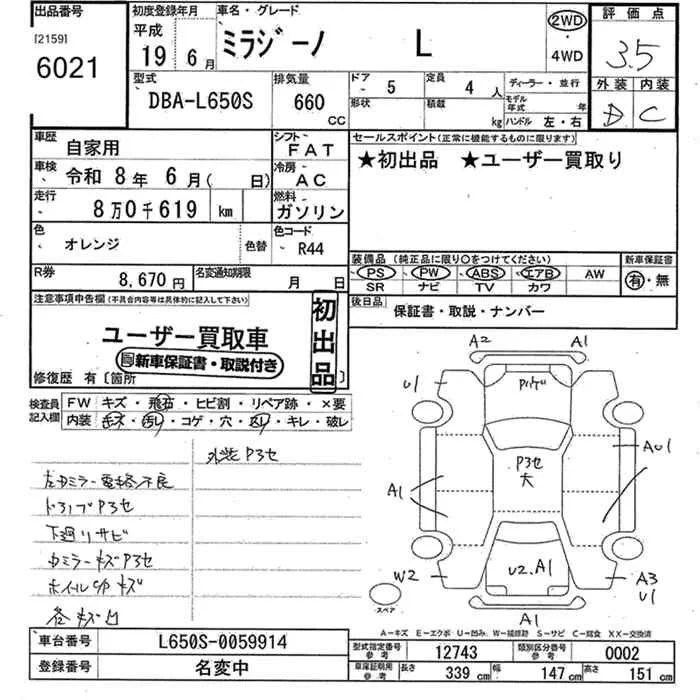 出品番号 初度登録年月 車名・グレード 評価点
[2159] 平成 ミラジーノ L 2WD・ 3.5
6021 19年 6月 4WD 外装 内装
型式 排気量 ドア 5 定員 4人 ディーラー・並行 D C
DBA-L650S 660 CC 形状 積載 kg モデル年式 年 ハンドル 左・右
車歴 自家用 シフト FAT セールスポイント(正常に機能するものに限ります)
車検 令和 8年 6月( 日) 冷房 AC ★初出品 ★ユーザー買取り
走行 8万0千619 km 燃料 ガソリン
色 オレンジ 色替 色コード R44
装備品(純正品に限り○をつけてください) 新車保証書
R券 8,670円 名変通知期限 月 日 PS PW ABS エアB AW 有・無
SR ナビ TV カワ
注意事項申告欄(不具合内容等は具体的に記入して下さい) 後日品 保証書・取説・ナンバー
初出品
ユーザー買取車
新車保証書・取説付き
修復歴 有〔箇所
検査員記入欄 FW キズ・飛石・ヒビ割・リペア跡・×要
内装 キズ・汚れ・コゲ・穴・凹レ・キレ・破レ
外装P3セ
左ｶﾞﾐﾗｰ電格不良
ドアノブP3セ
下廻リサビ
ｶﾞﾐﾗｰｷｽﾞP3セ
ホイルC/Pキズ
各キズ凹
A2 A1
U1 P ﾊｹﾞ
AU1
P3セ
大
A1
W2 U2.A1 A3
U1
スペア A1
A-キズ E-エクボ U-凹み W-補修跡 S-サビ C-腐食 XX-交換済
車台番号 L650S-0059914 型式指定番号 参考 12743 類別区分番号 参考 0002
登録番号 名変中 車庫証明用 参考 長さ 339 cm 幅 147 cm 高さ 151 cm